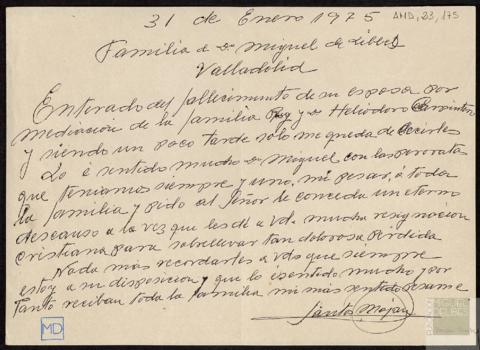 31 de Enero 1975
AMD, 23, 175
Familia de Dn Miguel de Libes
Valladolid
Enterado del fallecimiento de su esposa por
mediación de la familia Rey y Dn Heliodoro Carpintero
y siendo un poco tarde solo me queda de decirles
Lo é sentido mucho Dn Miguel con las peroratas
que teniamos siempre y uno, mi pesar, á toda
la familia y pido al Señor le conceda un eterno
descanso a la vez que les dé a Vd. mucha resignación
cristiana para sobrellevar tan dolorosa pérdida
Nada más recordarles a Vds que siempre
estoy a su disposicion y que lo é sentido mucho y por
tanto reciban toda la familia mi más sentido pésame
Santos
MD
FUNDACIÓN MIGUEL DELIBES